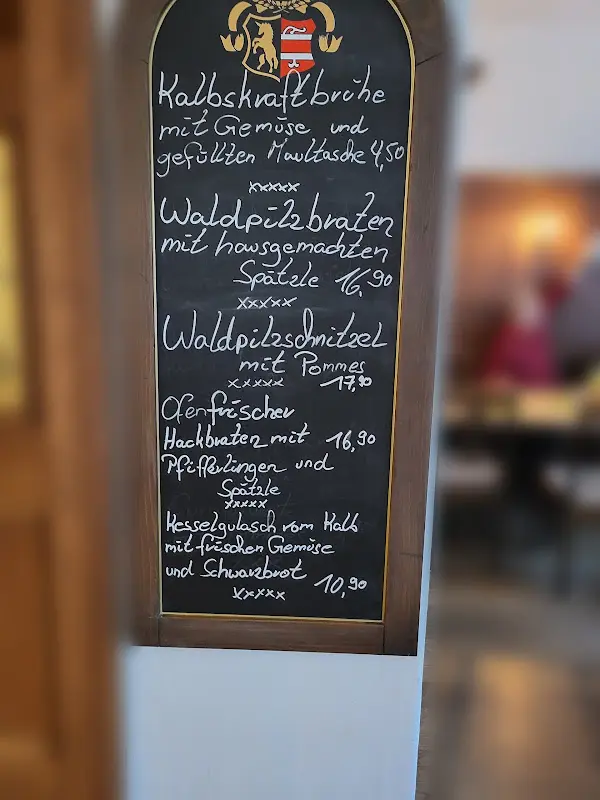 Kalbskraftbrühe
mit Gemüse und
gefüllten Maultasche 4,50
xxxxx
Waldpilzbraten
mit hausgemachten
Spätzle 16,90
xxxxx
Waldpilzschnitzel
mit Pommes
xxxxx 17,90
Ofenfrischer
Hackbraten mit 16,90
Pfifferlingen und
Spätzle
xxxxx
Kesselgulasch vom Kalb
mit frischen Gemüse
und Schwarzbrot 10,90
xxxxx